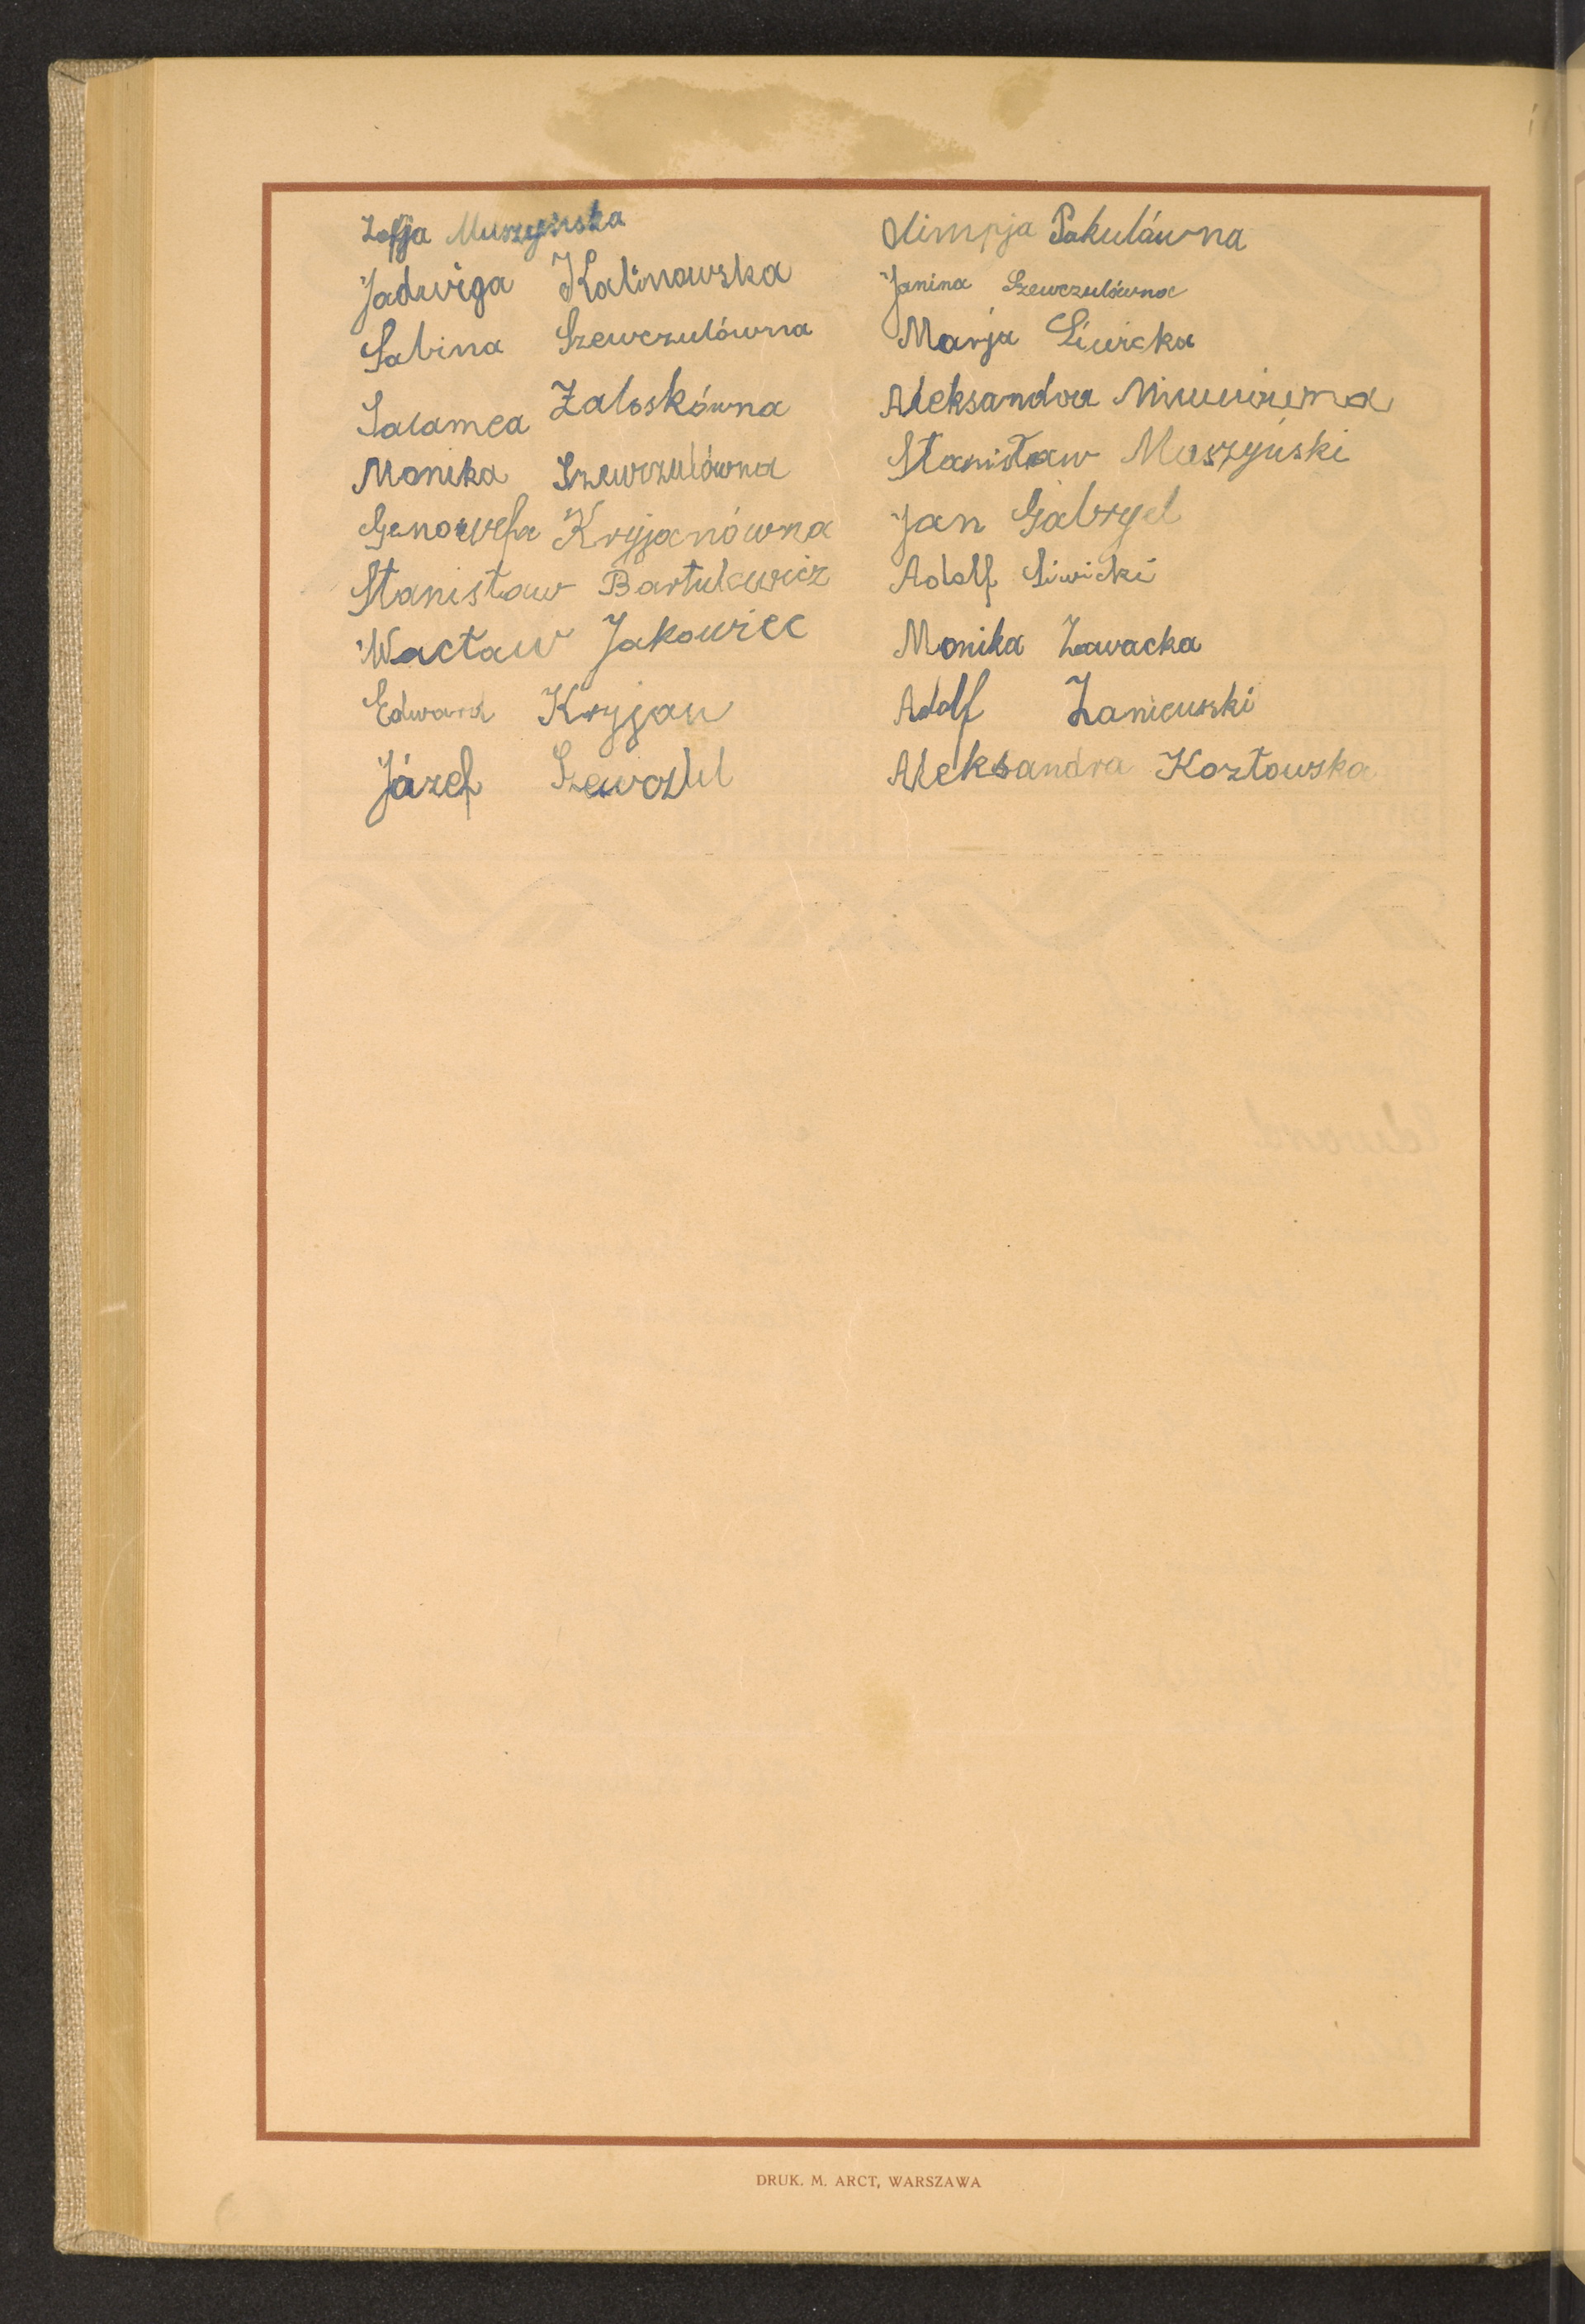 Zofja Muszyńska
Jadwiga Kalinowska
Sabina Szewczulówna
Salamea Zaloskówna
Monika Szewczulówna
Genowefa Kryjanówna
Stanisław Bartulewicz
Wacław Jakowiec
Edward Kryjan
Józef Szewczul
Olimpja Pakulówna
Janina Szewczulówna
Marja Siwicka
Aleksandra
Stanisław Muszyński
Jan Gabryel
Adolf Siwicki
Monika Zawacka
Adolf Zaniewski
Aleksandra Kozłowska
DRUK. M. ARCT, WARSZAWA